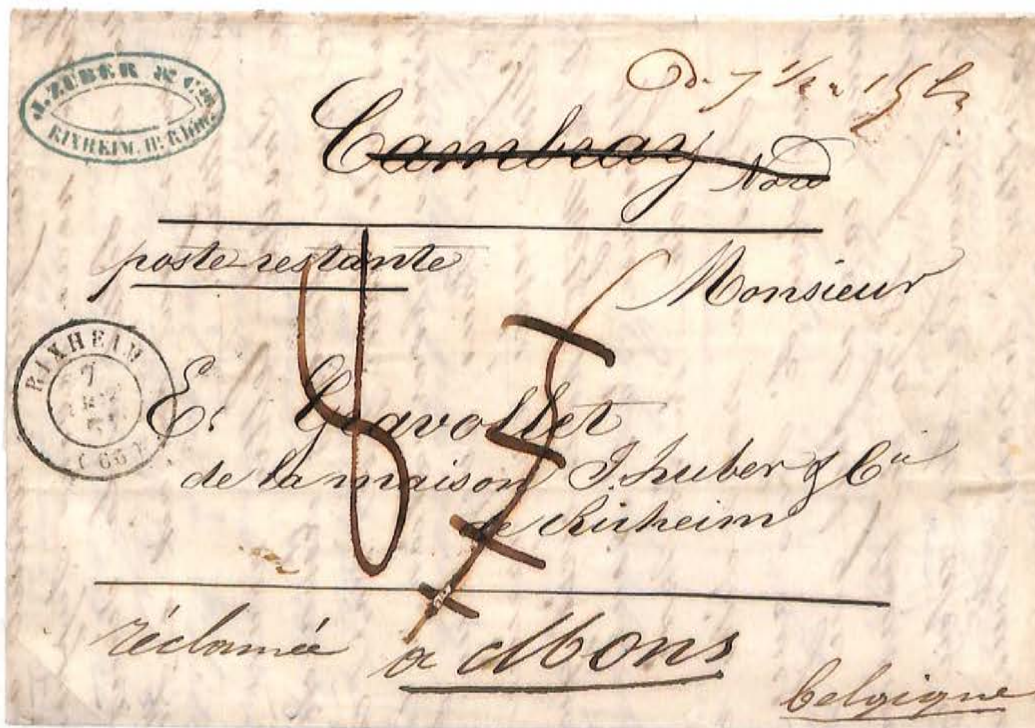 J. ZUBER & Cie
RIXHEIM, Ht. Rhin.
Cambray
Nord
poste restante
Monsieur
RIXHEIM
7
(66)
E. Gravollet
de la maison J. Zuber & Cie
de Rixheim
réclamée à Mons
Belgique